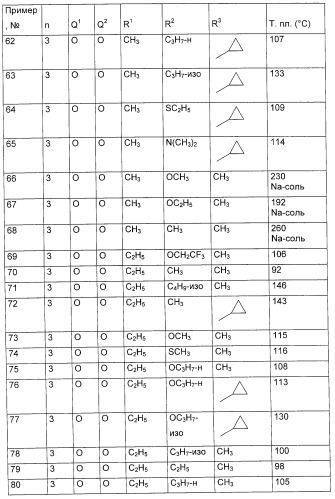 Пример, № n Q¹ Q² R¹ R² R³ Т. пл. (°C)
62 3 O O CH₃ C₃H₇-н 107
63 3 O O CH₃ C₃H₇-изо 133
64 3 O O CH₃ SC₂H₅ 109
65 3 O O CH₃ N(CH₃)₂ 114
66 3 O O CH₃ OCH₃ CH₃ 230 Na-соль
67 3 O O CH₃ OC₂H₅ CH₃ 192 Na-соль
68 3 O O CH₃ CH₃ CH₃ 260 Na-соль
69 3 O O C₂H₅ OCH₂CF₃ CH₃ 106
70 3 O O C₂H₅ CH₃ CH₃ 92
71 3 O O C₂H₅ C₄H₉-изо CH₃ 146
72 3 O O C₂H₅ CH₃ 143
73 3 O O C₂H₅ OCH₃ CH₃ 115
74 3 O O C₂H₅ SCH₃ CH₃ 116
75 3 O O C₂H₅ OC₃H₇-н CH₃ 108
76 3 O O C₂H₅ OC₃H₇-н 113
77 3 O O C₂H₅ OC₃H₇-изо 130
78 3 O O C₂H₅ C₃H₇-изо CH₃ 100
79 3 O O C₂H₅ C₂H₅ CH₃ 98
80 3 O O C₂H₅ C₃H₇-н CH₃ 105